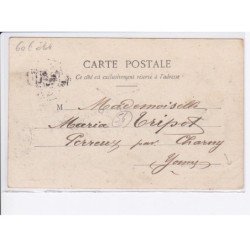 CARTE POSTALE
Ce côté est exclusivement réservé à l'adresse
M Mademoiselle
Maria Tripot
Perreux par Charny
Yonne